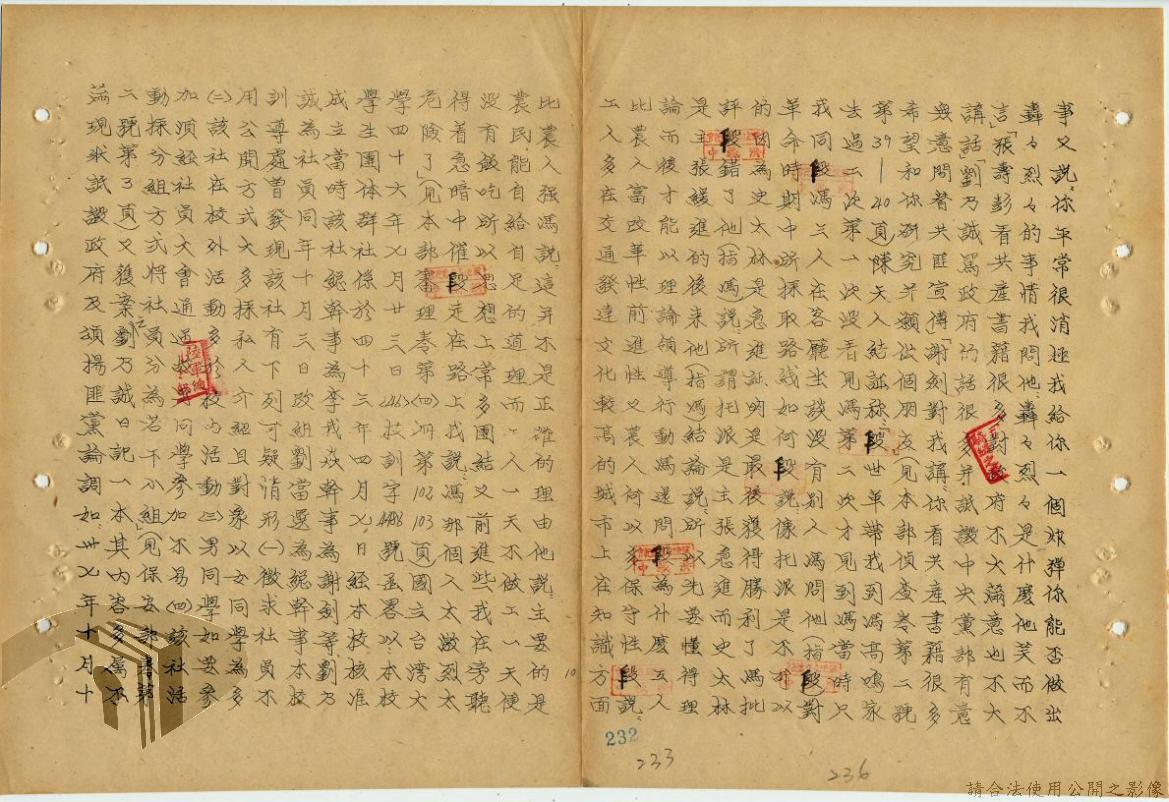 事又說你年常很消極我給你一個炸彈你能否做出
轟々烈々的事情我問他轟々烈々是什麼他笑而不
言「張壽彭看共產書籍很多對政府不大滿意也不大
講話」劉乃誠罵政府的話很多并詆譭中央黨部有意
無意間替共匪宣傳「謝剑對我講你看共產書籍很多
希望和你研究并願做個朋友(見本部偵查卷第二號
第39—40頁)陳天入結証称「段世革帶我到馮高鳴家
去過二次第一次沒看見馮第二次才見到馮當時只
我同段馮三人在客廳坐談沒有別人馮問他(指段)對
革命時期中所採取路线如何段說像托派是不可以
的因為史太林是急進証明是最後獲得勝利了馮批
評段錯了他(指馮)說所謂托派是主張急進而史太林
是主張緩進的後来他(指馮)結論說所以先要懂得理
論而後才能以理論領導行動馮還問段為什麼工人
比農人富改革性前進性又農人何以多保守性段說
工人多在交通發達文化較高的城市上在知識方面
比農人强馮說這并不是正確的理由他說主要的是
農民能自給自足的道理而工人一天不做工一天便
没有飯吃所以思想上常多團結又前進些我在旁聽
得着急暗中催段走在路上找說馮那個人太激烈太
危險了(見本部審理卷第(四)册第102 103頁)國立台灣大
學四十六年七月廿三日(46)校訓字4486號函畧以本校
學生團体群社係於四十三年四月七日經本校核准
成立當時該社總幹事為李我焱幹事為謝剑等劉乃
誠為社員同年十月三日改組劉當選為總幹事本校
訓導處曾發現該社有下列可疑情形(一)徵求社員不
用公開方式大多採私人介紹且對象以女同學為多
(二)該社在校外活動多於校内活動(三)男同學如要參
加須經社員大會通過故男同學參加不易(四)該社活
動採分組方式將社員分為若干小組」(見保安部書第
二號第3頁)又獲案劉乃誠日記一本其内容多屬不
滿現狀詆譭政府及頌揚匪黨論調如:卅七年十月十
10
232
233
236
請合法使用公開之影像